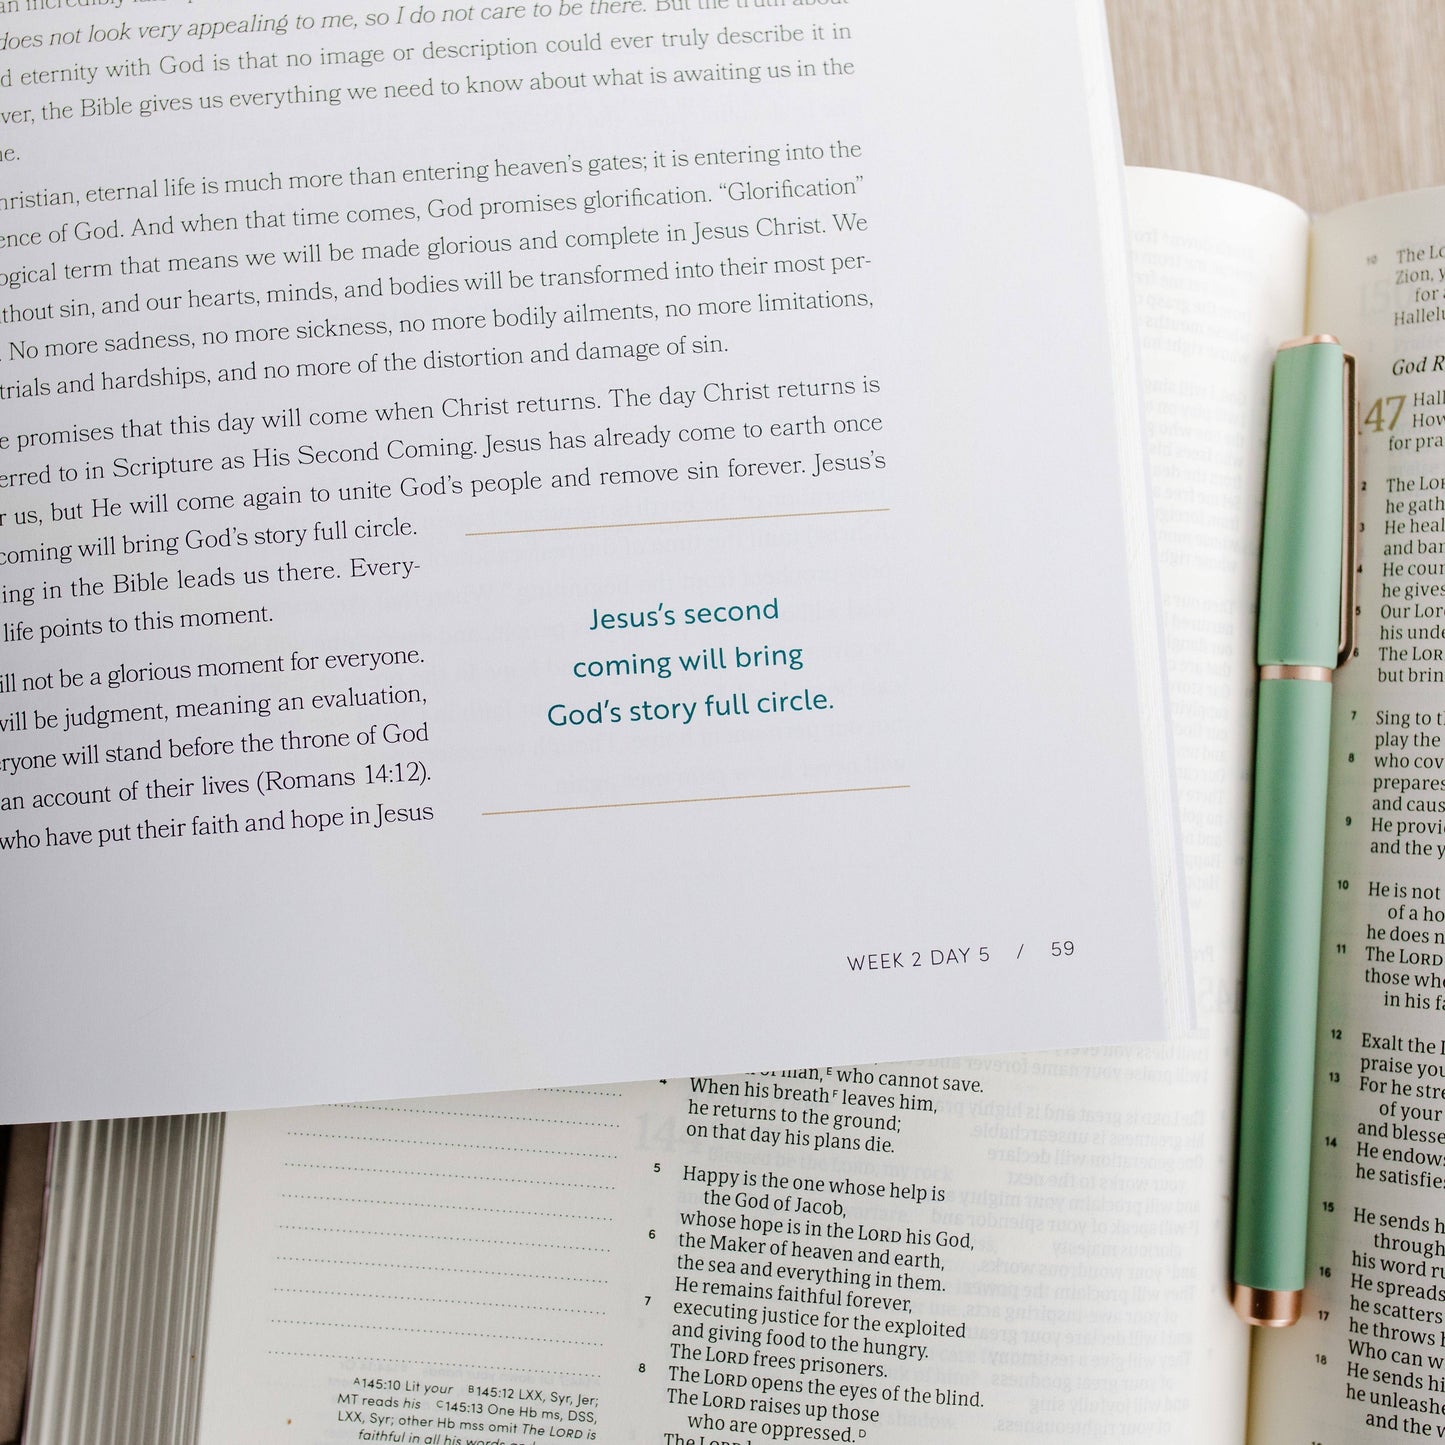 does not look very appealing to me, so I do not care to be there. But the truth about
d eternity with God is that no image or description could ever truly describe it in
ver, the Bible gives us everything we need to know about what is awaiting us in the
ne.
hristian, eternal life is much more than entering heaven's gates; it is entering into the
ence of God. And when that time comes, God promises glorification. “Glorification”
ogical term that means we will be made glorious and complete in Jesus Christ. We
ithout sin, and our hearts, minds, and bodies will be transformed into their most per-
. No more sadness, no more sickness, no more bodily ailments, no more limitations,
trials and hardships, and no more of the distortion and damage of sin.
e promises that this day will come when Christ returns. The day Christ returns is
erred to in Scripture as His Second Coming. Jesus has already come to earth once
r us, but He will come again to unite God's people and remove sin forever. Jesus's
coming will bring God's story full circle.
ing in the Bible leads us there. Every-
life points to this moment.
ill not be a glorious moment for everyone.
will be judgment, meaning an evaluation,
eryone will stand before the throne of God
an account of their lives (Romans 14:12).
who have put their faith and hope in Jesus
Jesus's second
coming will bring
God's story full circle.
WEEK 2 DAY 5 / 59
man,ᴱ who cannot save.
4 When his breathᶠ leaves him,
he returns to the ground;
on that day his plans die.
5 Happy is the one whose help is
the God of Jacob,
whose hope is in the LORD his God,
6 the Maker of heaven and earth,
the sea and everything in them.
He remains faithful forever,
7 executing justice for the exploited
and giving food to the hungry.
The LORD frees prisoners.
8 The LORD opens the eyes of the blind.
The LORD raises up those
who are oppressed.ᴰ
The LORD
ᴬ145:10 Lit your ᴮ145:12 LXX, Syr, Jer;
MT reads his ᶜ145:13 One Hb ms, DSS,
LXX, Syr; other Hb mss omit The LORD is
faithful in all his words
10 The LO
Zion, y
for
Hallelu
God R
147 Hall
How
for pra
2 The LOR
he gath
3 He heal
and ban
4 He coun
he gives
5 Our Lor
his unde
6 The LOR
but brin
7 Sing to t
play the
8 who cov
prepares
and caus
9 He provi
and the y
10 He is not
of a ho
he does n
11 The LORD
those who
in his fa
12 Exalt the
praise you
13 For he stre
of your
and blesse
14 He endows
he satisfie
15 He sends h
through
his word ru
16 He spreads
he scatters
17 he throws h
Who can w
18 He sends hi
he unleashe
and the w